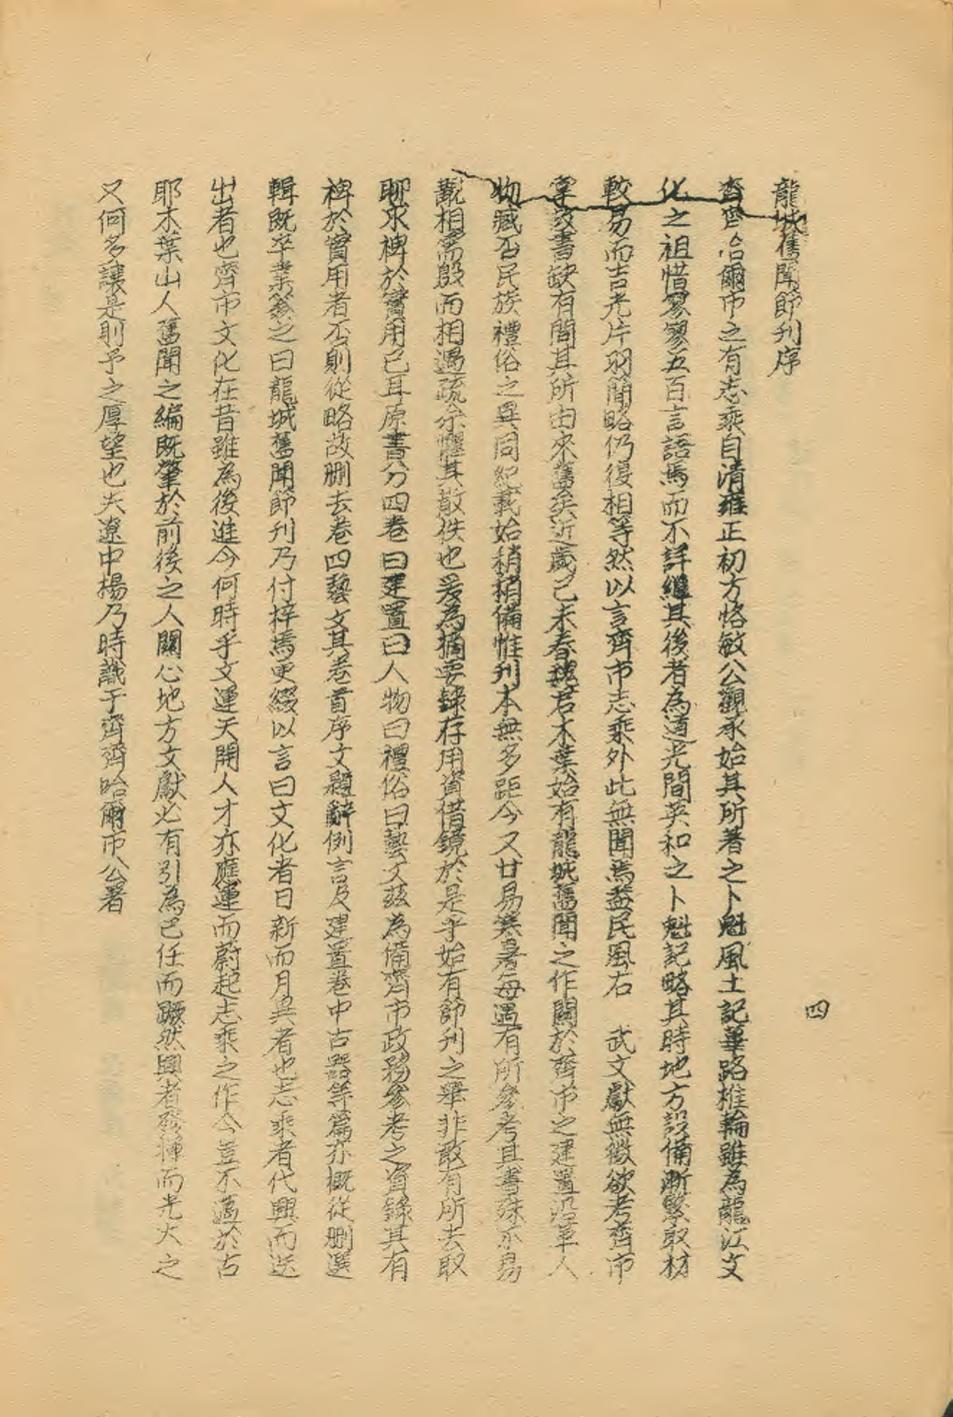 龍城舊聞節刊序
齊齊哈爾市之有志乘自清雍正初方恪敏公觀承始其所著之卜魁風土記蓽路椎輪雖為龍江文
化之祖惜寥寥五百言語焉而不詳繼其後者為道光間英和之卜魁記略其時地方設備漸繁取材
較易而吉光片羽簡略仍復相等然以言齊市志乘外此無聞焉蓋民風右 武文獻無徵欲考齊市
掌故書缺有間其所由來舊矣近歲己未春魏君木葉始有龍城舊聞之作關於齊市之建置沿革人
物臧否民族禮俗之異同紀載始稍稍備惟刊本無多距今又廿易寒暑每遇有所參考其書殊不易
覯相需殷而相遇疏余懼其散佚也爰為摘要錄存用資借鏡於是乎始有節刊之舉非敢有所去取
聊求裨於實用已耳原書分四卷曰建置曰人物曰禮俗曰藝文茲為備齊市政務參考之資錄其有
裨於實用者否則從略故刪去卷四藝文其卷首序文題辭例言及建置卷中古器等篇亦概從刪選
輯既卒業簽之曰龍城舊聞節刊乃付梓焉更綴以言曰文化者日新而月異者也志乘者代興而迭
出者也齊市文化在昔雖為後進今何時乎文運天開人才亦應運而蔚起志乘之作今豈不邁於古
耶木葉山人舊聞之編既肇於前後之人關心地方文獻必有引為己任而蹶然興者發揮而光大之
又何多讓是則予之厚望也夫遼中楊乃時識于齊齊哈爾市公署
四